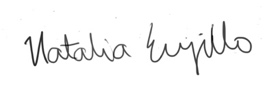 Natalia Trujillo